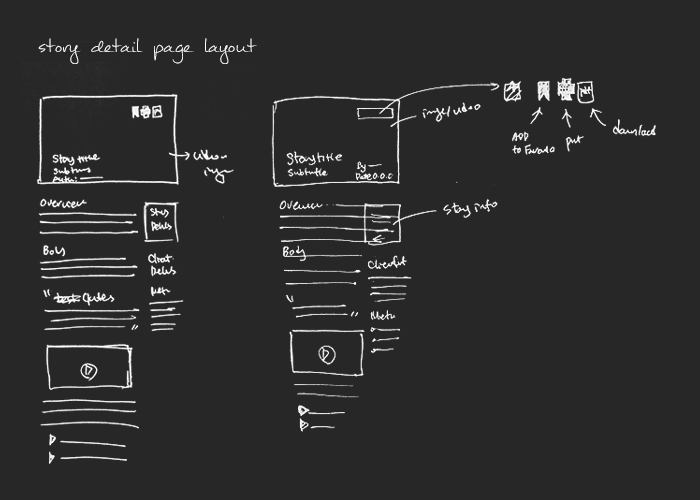 story detail page layout
Story title
Subtitles
Auth:
video
image
Overview
Story
Details
Body
Client
Details
Meta
" Quotes
"
Story title
Subtitle
By
Date
image/video
ADD
to Favorite
print
download
Overview
story info
Body
Client
Meta
"
"